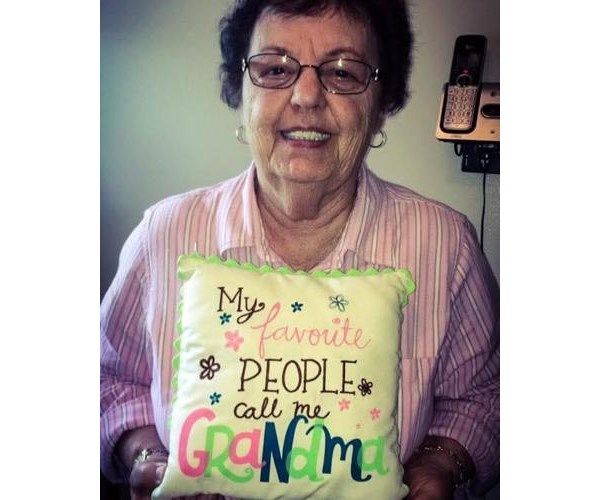 My
favorite
PEOPLE
call me
GRaNdma